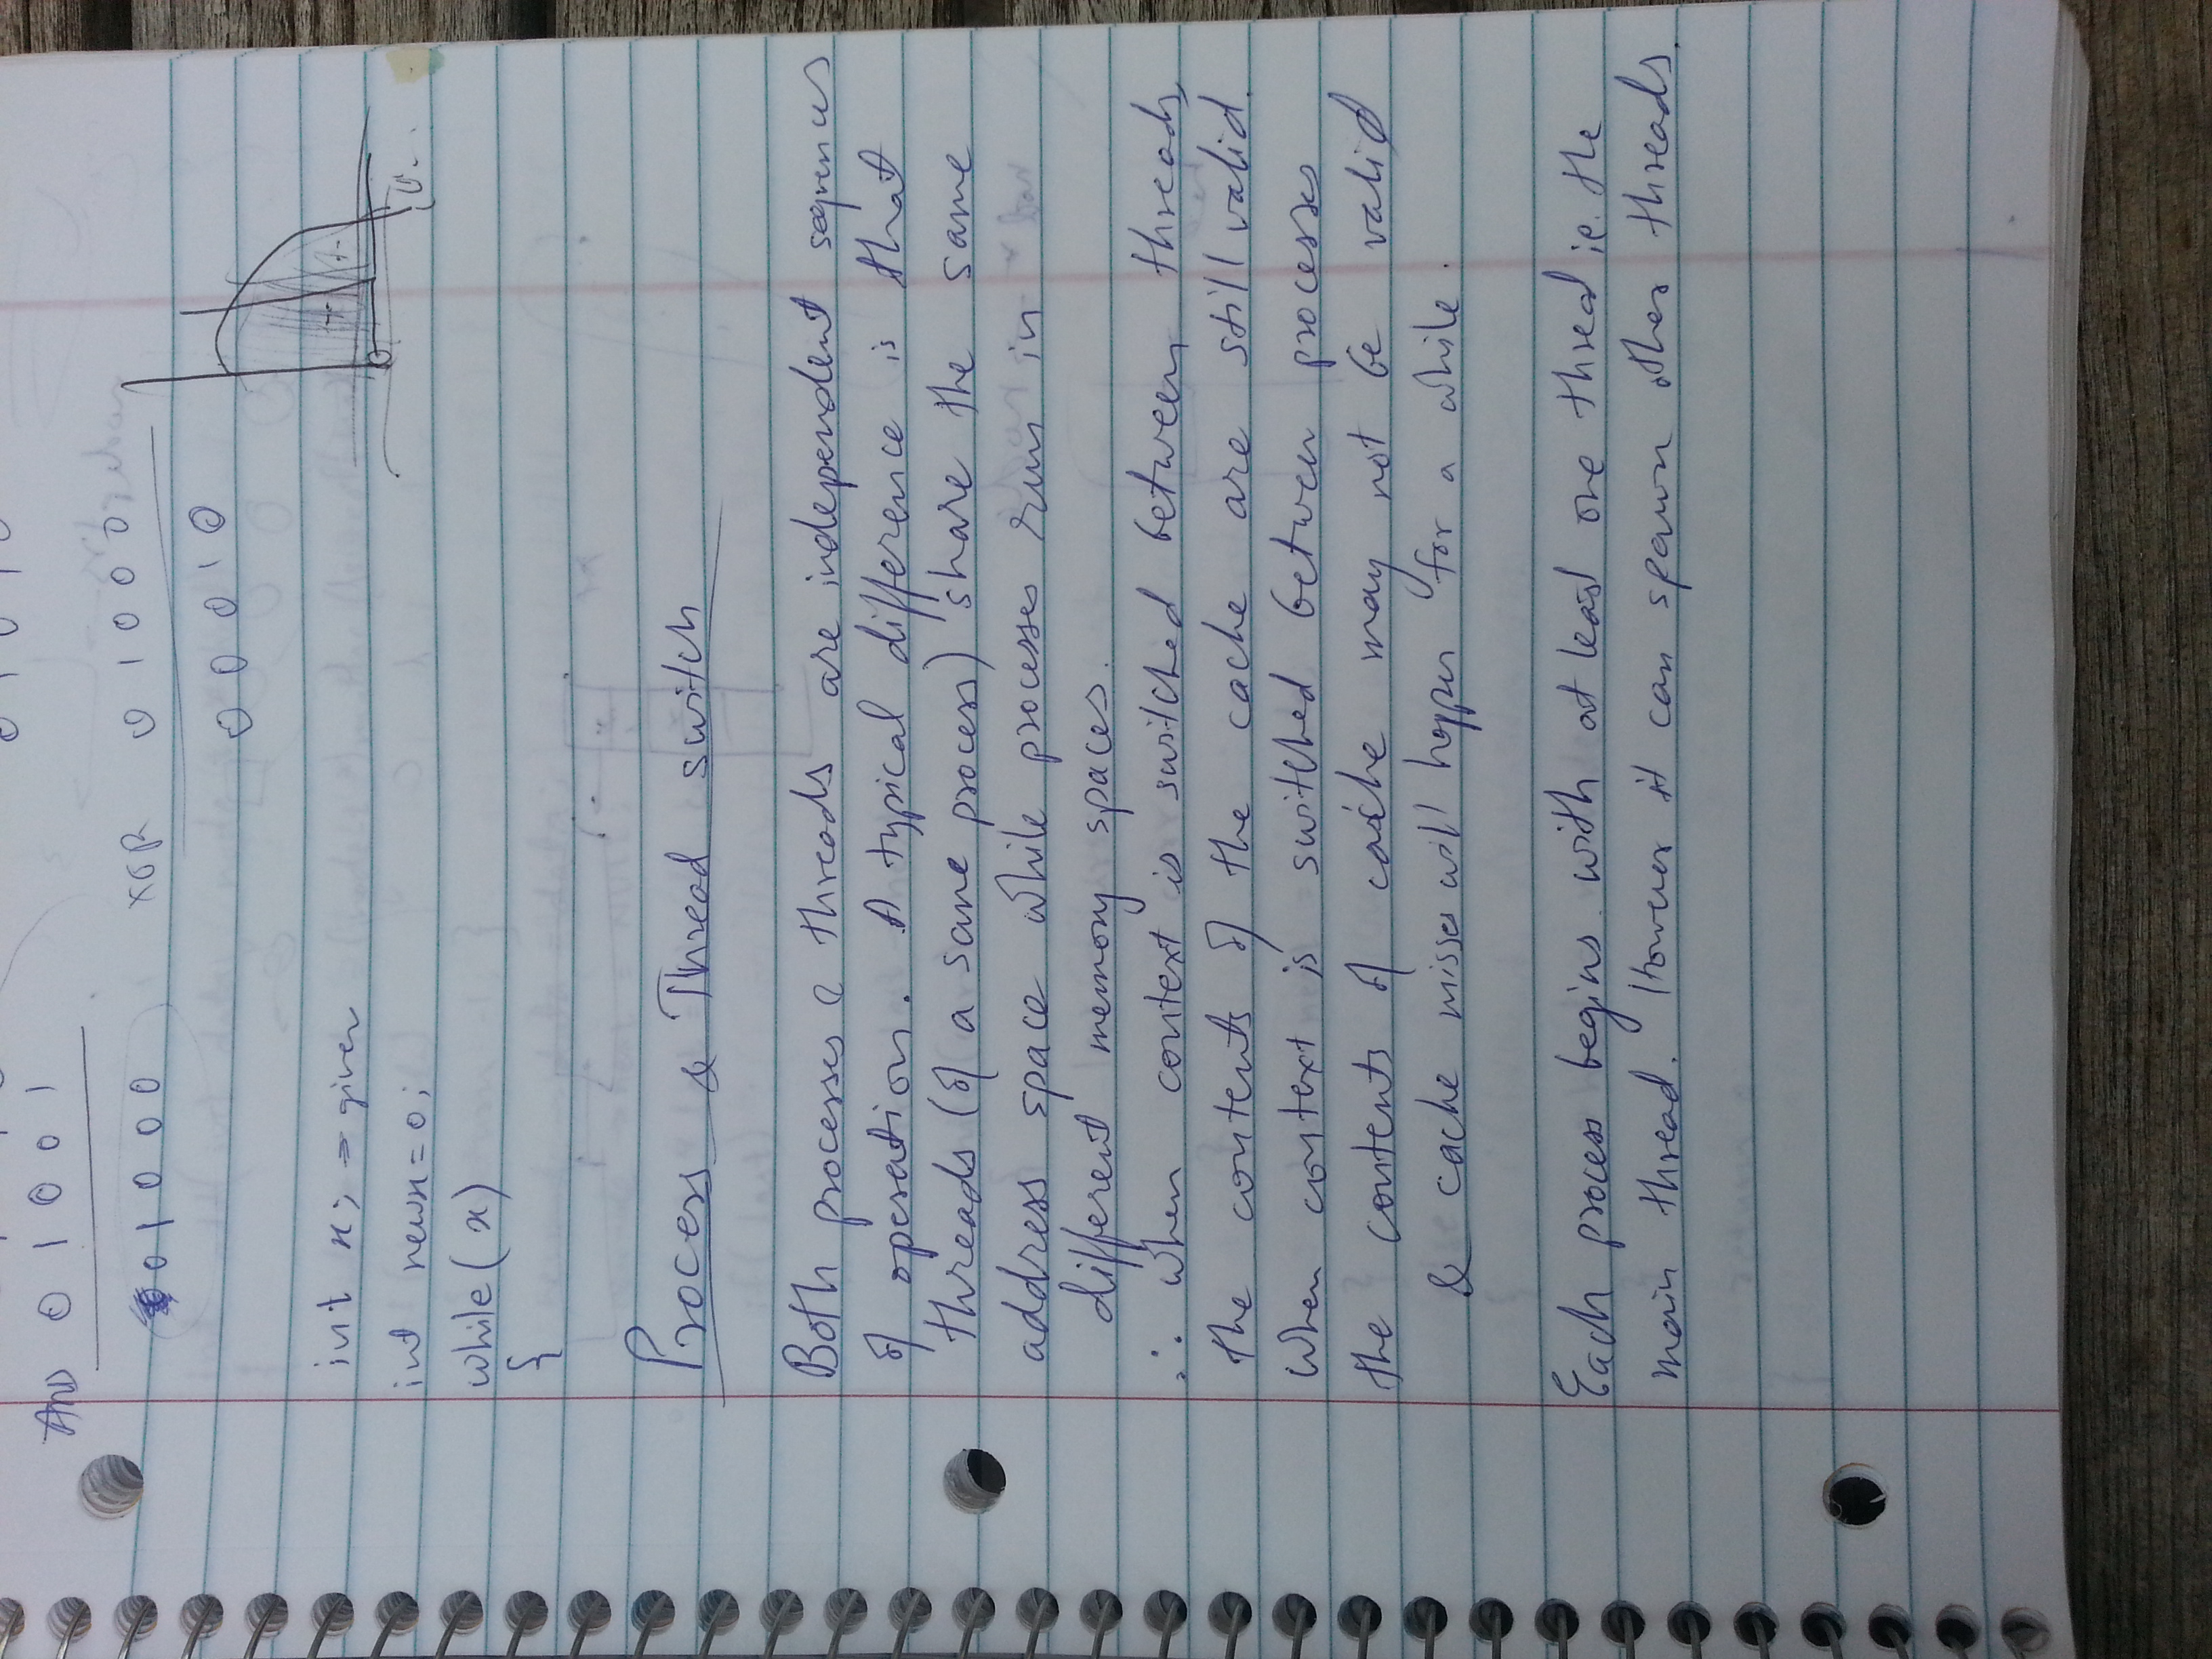 AND 0 1 0 0 1
0 1 0 0 0
XOR 0 1 0 0 0
0 0 0 1 0
int x; => given
int newx = 0;
while (x)
{
Process & Thread switch
Both processes & threads are independent sequences
of operation. A typical difference is that
threads (of a same process) share the same
address space while processes run in
different memory spaces.
∴ when context is switched between threads,
the contents of the cache are still valid.
When context is switched between processes
the contents of cache may not be valid
& cache misses will happen for a while.
Each process begins with at least one thread ie. the
main thread. However it can spawn other threads.